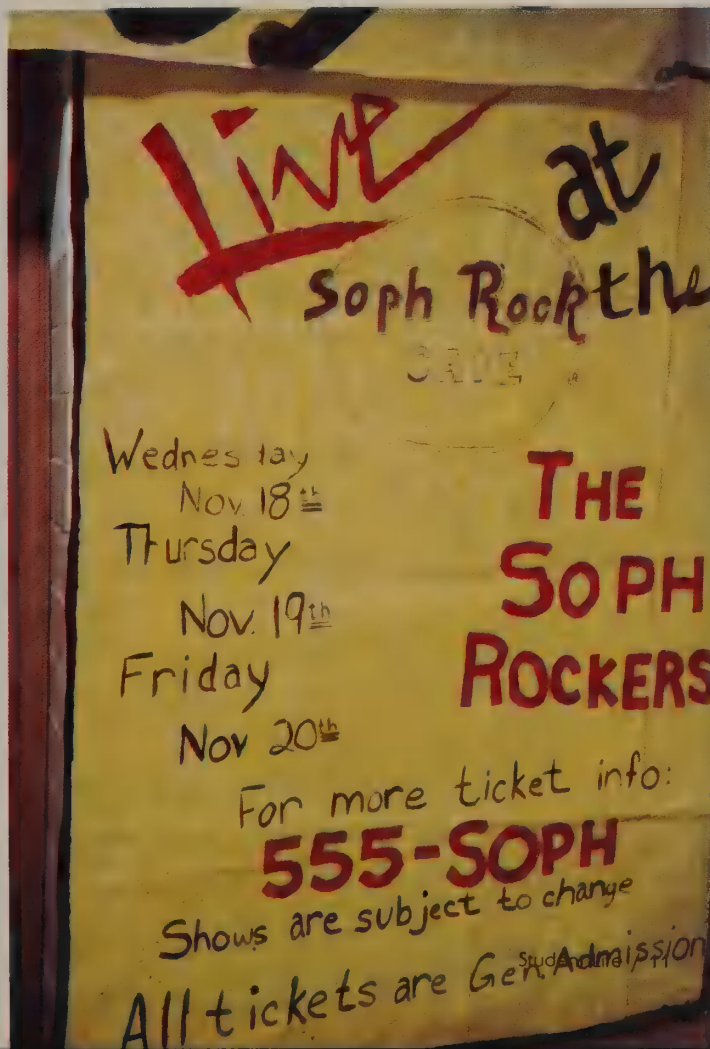 Live at
Soph Rock the
Wednesday
Nov. 18th
Thursday
Nov. 19th
Friday
Nov 20th
THE
SOPH
ROCKERS
For more ticket info:
555-SOPH
Shows are subject to change
All tickets are Gen. Admission